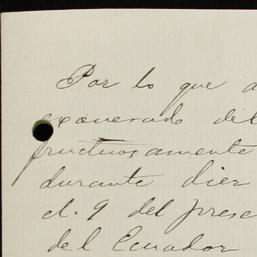 Por lo que a
exonerado del
fructuosamente
durante diez
el 9 del prese
del Ecuador